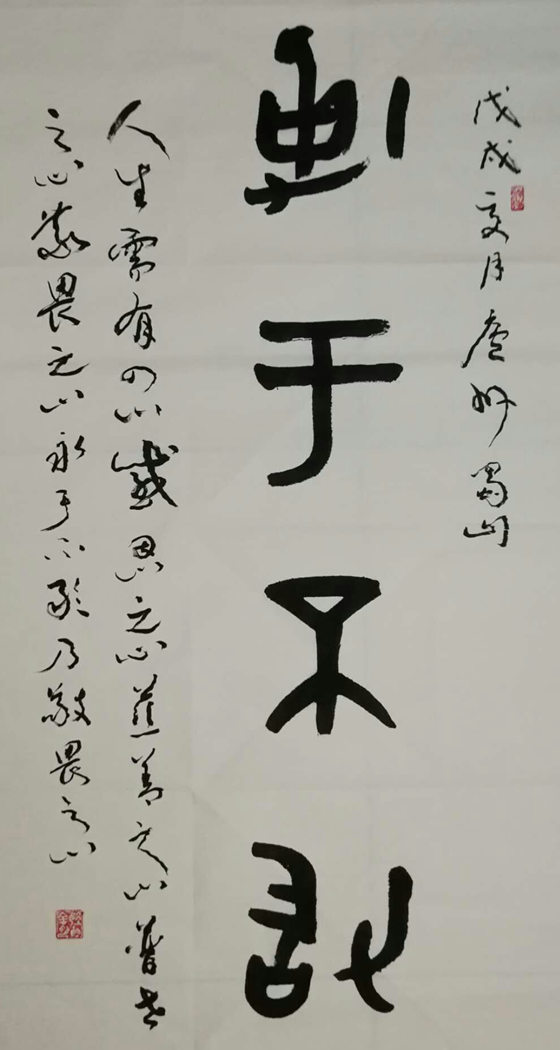 戊戌夏月庐州蜀山
勇于不敢
人生需有四心感恩之心慈善之心普世
之心敬畏之心勇于不敢乃敬畏之心